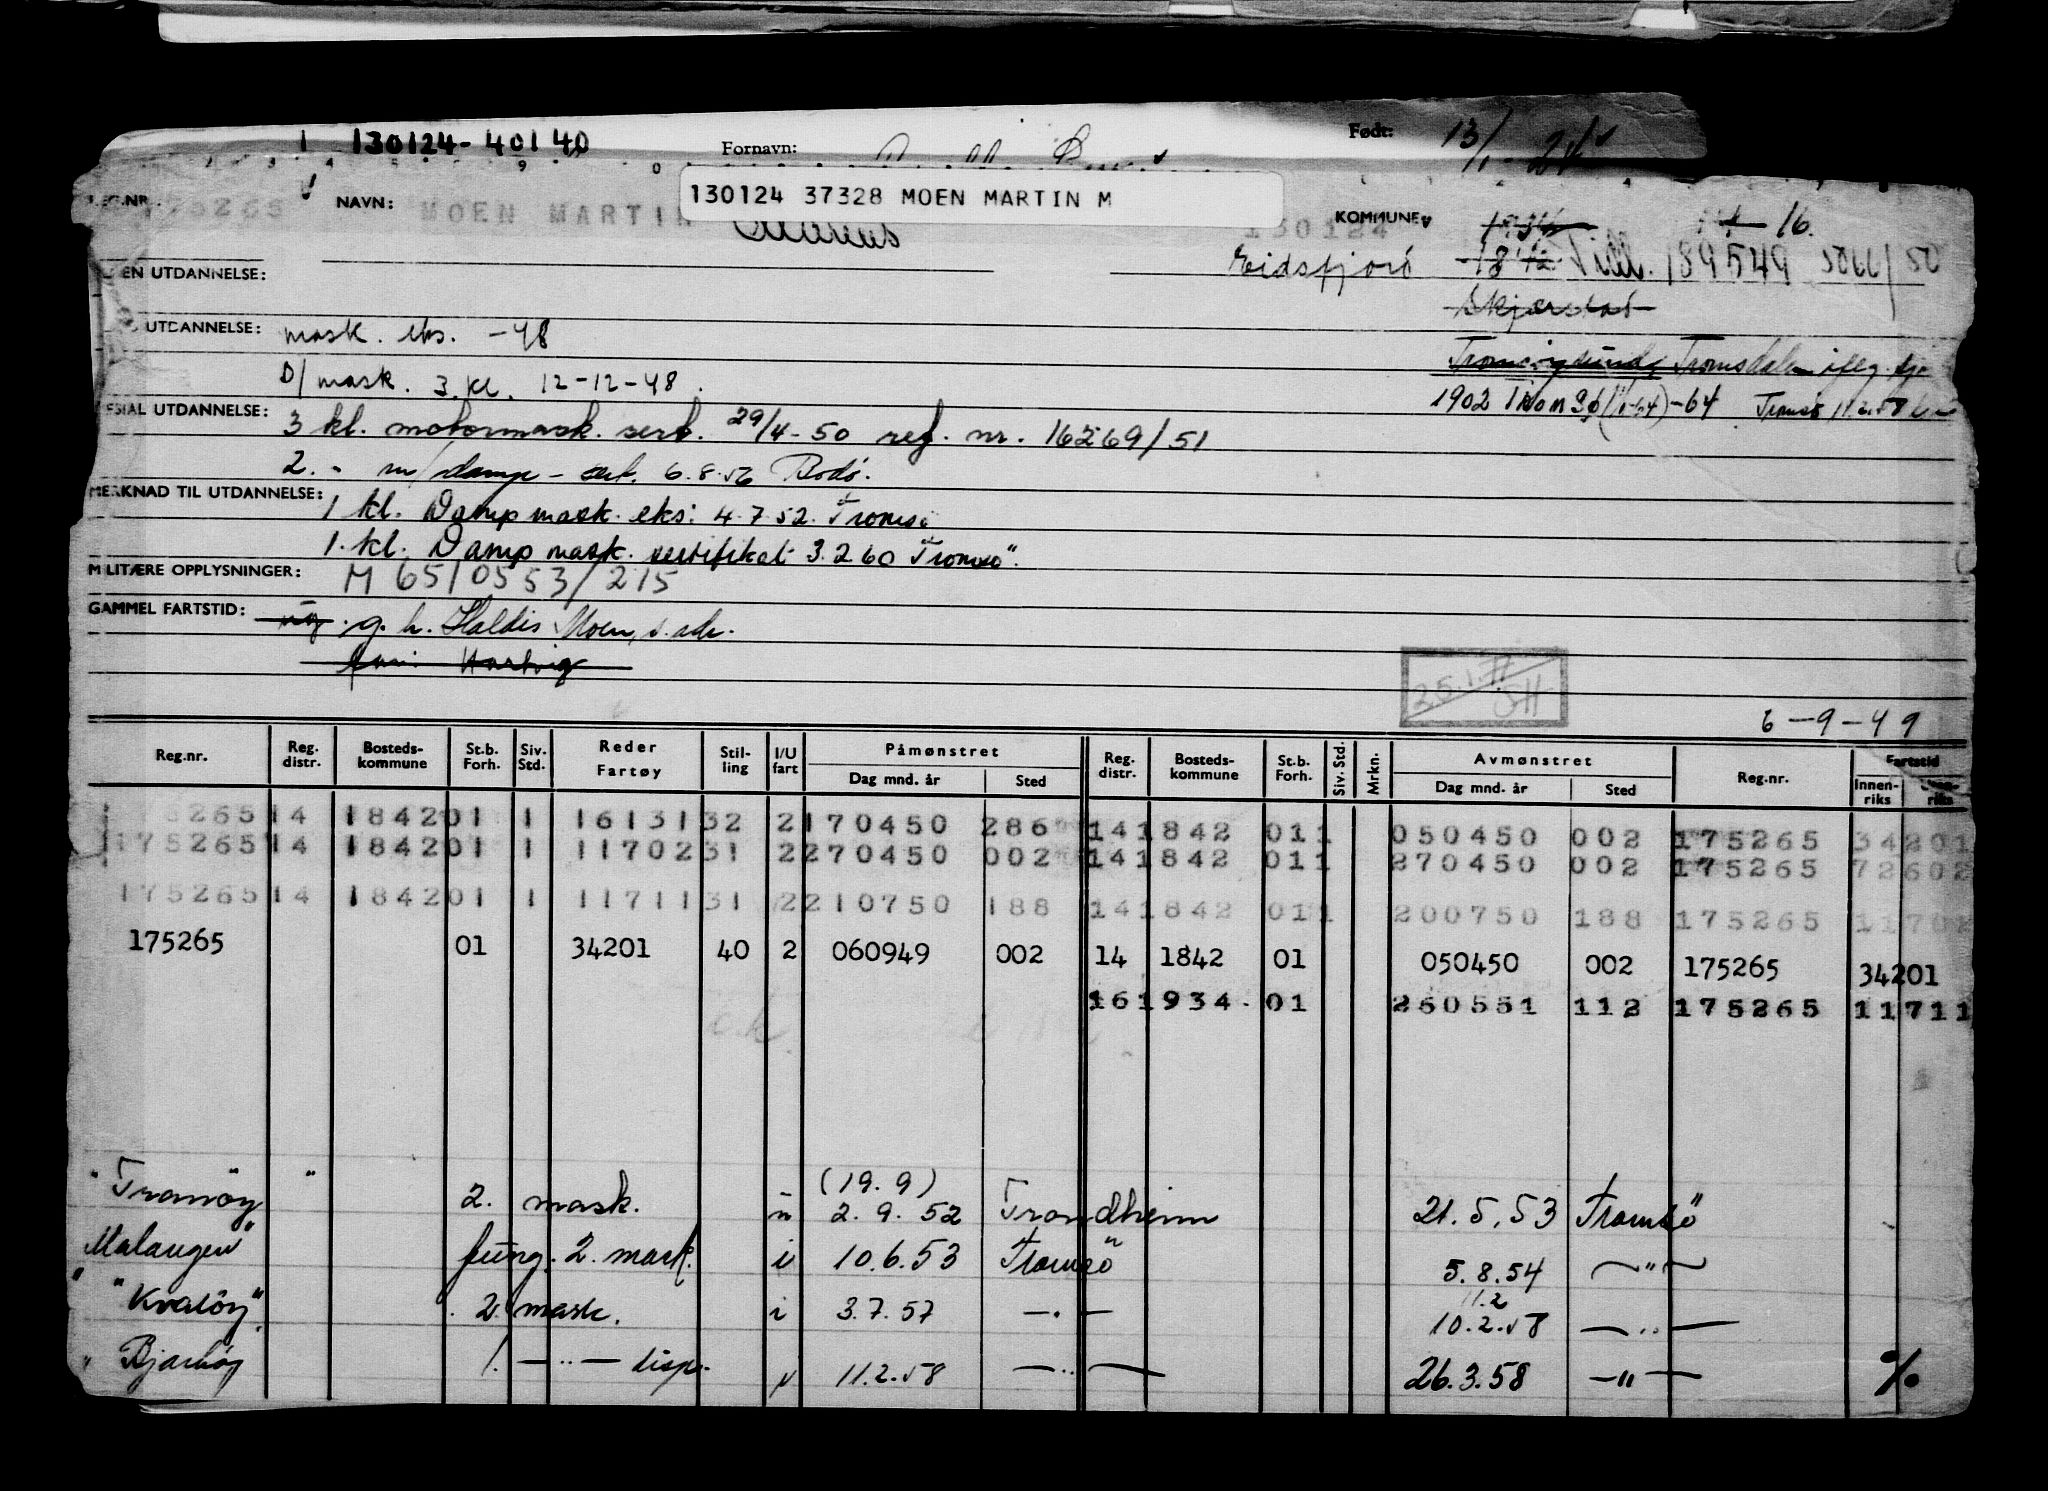 1 130124-40140 Fornavn: Født: 13/1-24
130124 37328 MOEN MARTIN M
REG.NR.: 175265 NAVN: MOEN MARTIN Marius 130124 KOMMUNE 16.
Eidsfjord 1842 Till. 189549 5066/50
UTDANNELSE:
Skjerstad
UTDANNELSE: mask. eks. -48
Tromsøysund Tromsdalen iflg.
D/mask. 3. kl. 12-12-48.
1902 -64 Tromsø 11.2.58
SPESIAL UTDANNELSE: 3 kl. motormask. sert. 29/4-50 reg. nr. 16269/51
2. - m/damp - sert. 6.8.56 Bodø.
MERKNAD TIL UTDANNELSE: 1 kl. Dampmask. eks: 4.7.52. Tromsö
1. kl. Dampmask. sertifikat 3.2.60 Tromsö".
MILITÆRE OPPLYSNINGER: M 6510553/215
GAMMEL FARTSTID: g. h. Haldis Moen, s. adr.
Hartvig
25.1.
6-9-49
Reg.nr. Reg. distr. Bosteds-kommune St.b. Forh. Siv. Std. Reder Fartøy Stil-ling I/U fart Påmønstret Dag mnd. år Sted Reg. distr. Bosteds-kommune St.b. Forh. Siv. Std. Mrkn. Avmønstret Dag mnd. år Sted Reg.nr. Fartstid Innen-riks
26514 184201 1 1613132 2170450 286 141842 011 050450 002 175265 34201
17526514 184201 1 1170231 2270450 002 141842 011 270450 002 175265 72602
17526514 184201 1 1171131 2210750 188 141842 011 200750 188 175265 11702
175265 01 34201 40 2 060949 002 14 1842 01 050450 002 175265 34201
161934 01 260551 112 175265 11711
o.k.
(19.9)
"Tromöy" " 2. mask. u 2.9.52 Trondheim 21.5.53 Tromsö
Malangen" fung. 2. mask. i 10.6.53 Tromsö 5.8.54 —"—
11.2
"Kvalöy". 2 mask. i 3.7.57 —"— 10.2.58 —"—
" Bjarköy 1. —"— disp. 11.2.58 —"— 26.3.58 —"— %